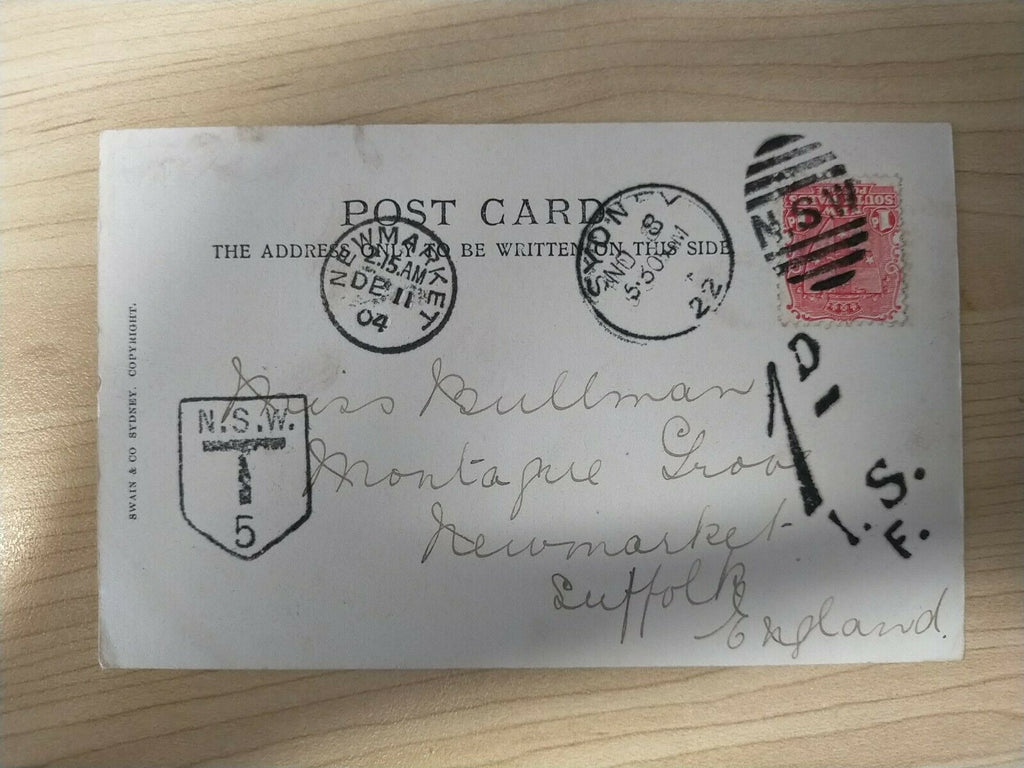 POST CARD
THE ADDRESS ONLY TO BE WRITTEN ON THIS SIDE
NEWMARKET
2.15.AM
DE 11
04
SYDNEY
NO 8
5.30PM
22
N.S.W
SOUTH
1D
1
D
I.S.F.
N.S.W.
T
5
Miss Bullman
Montague Grove
Newmarket
Suffolk
England.
SWAIN & CO SYDNEY. COPYRIGHT.